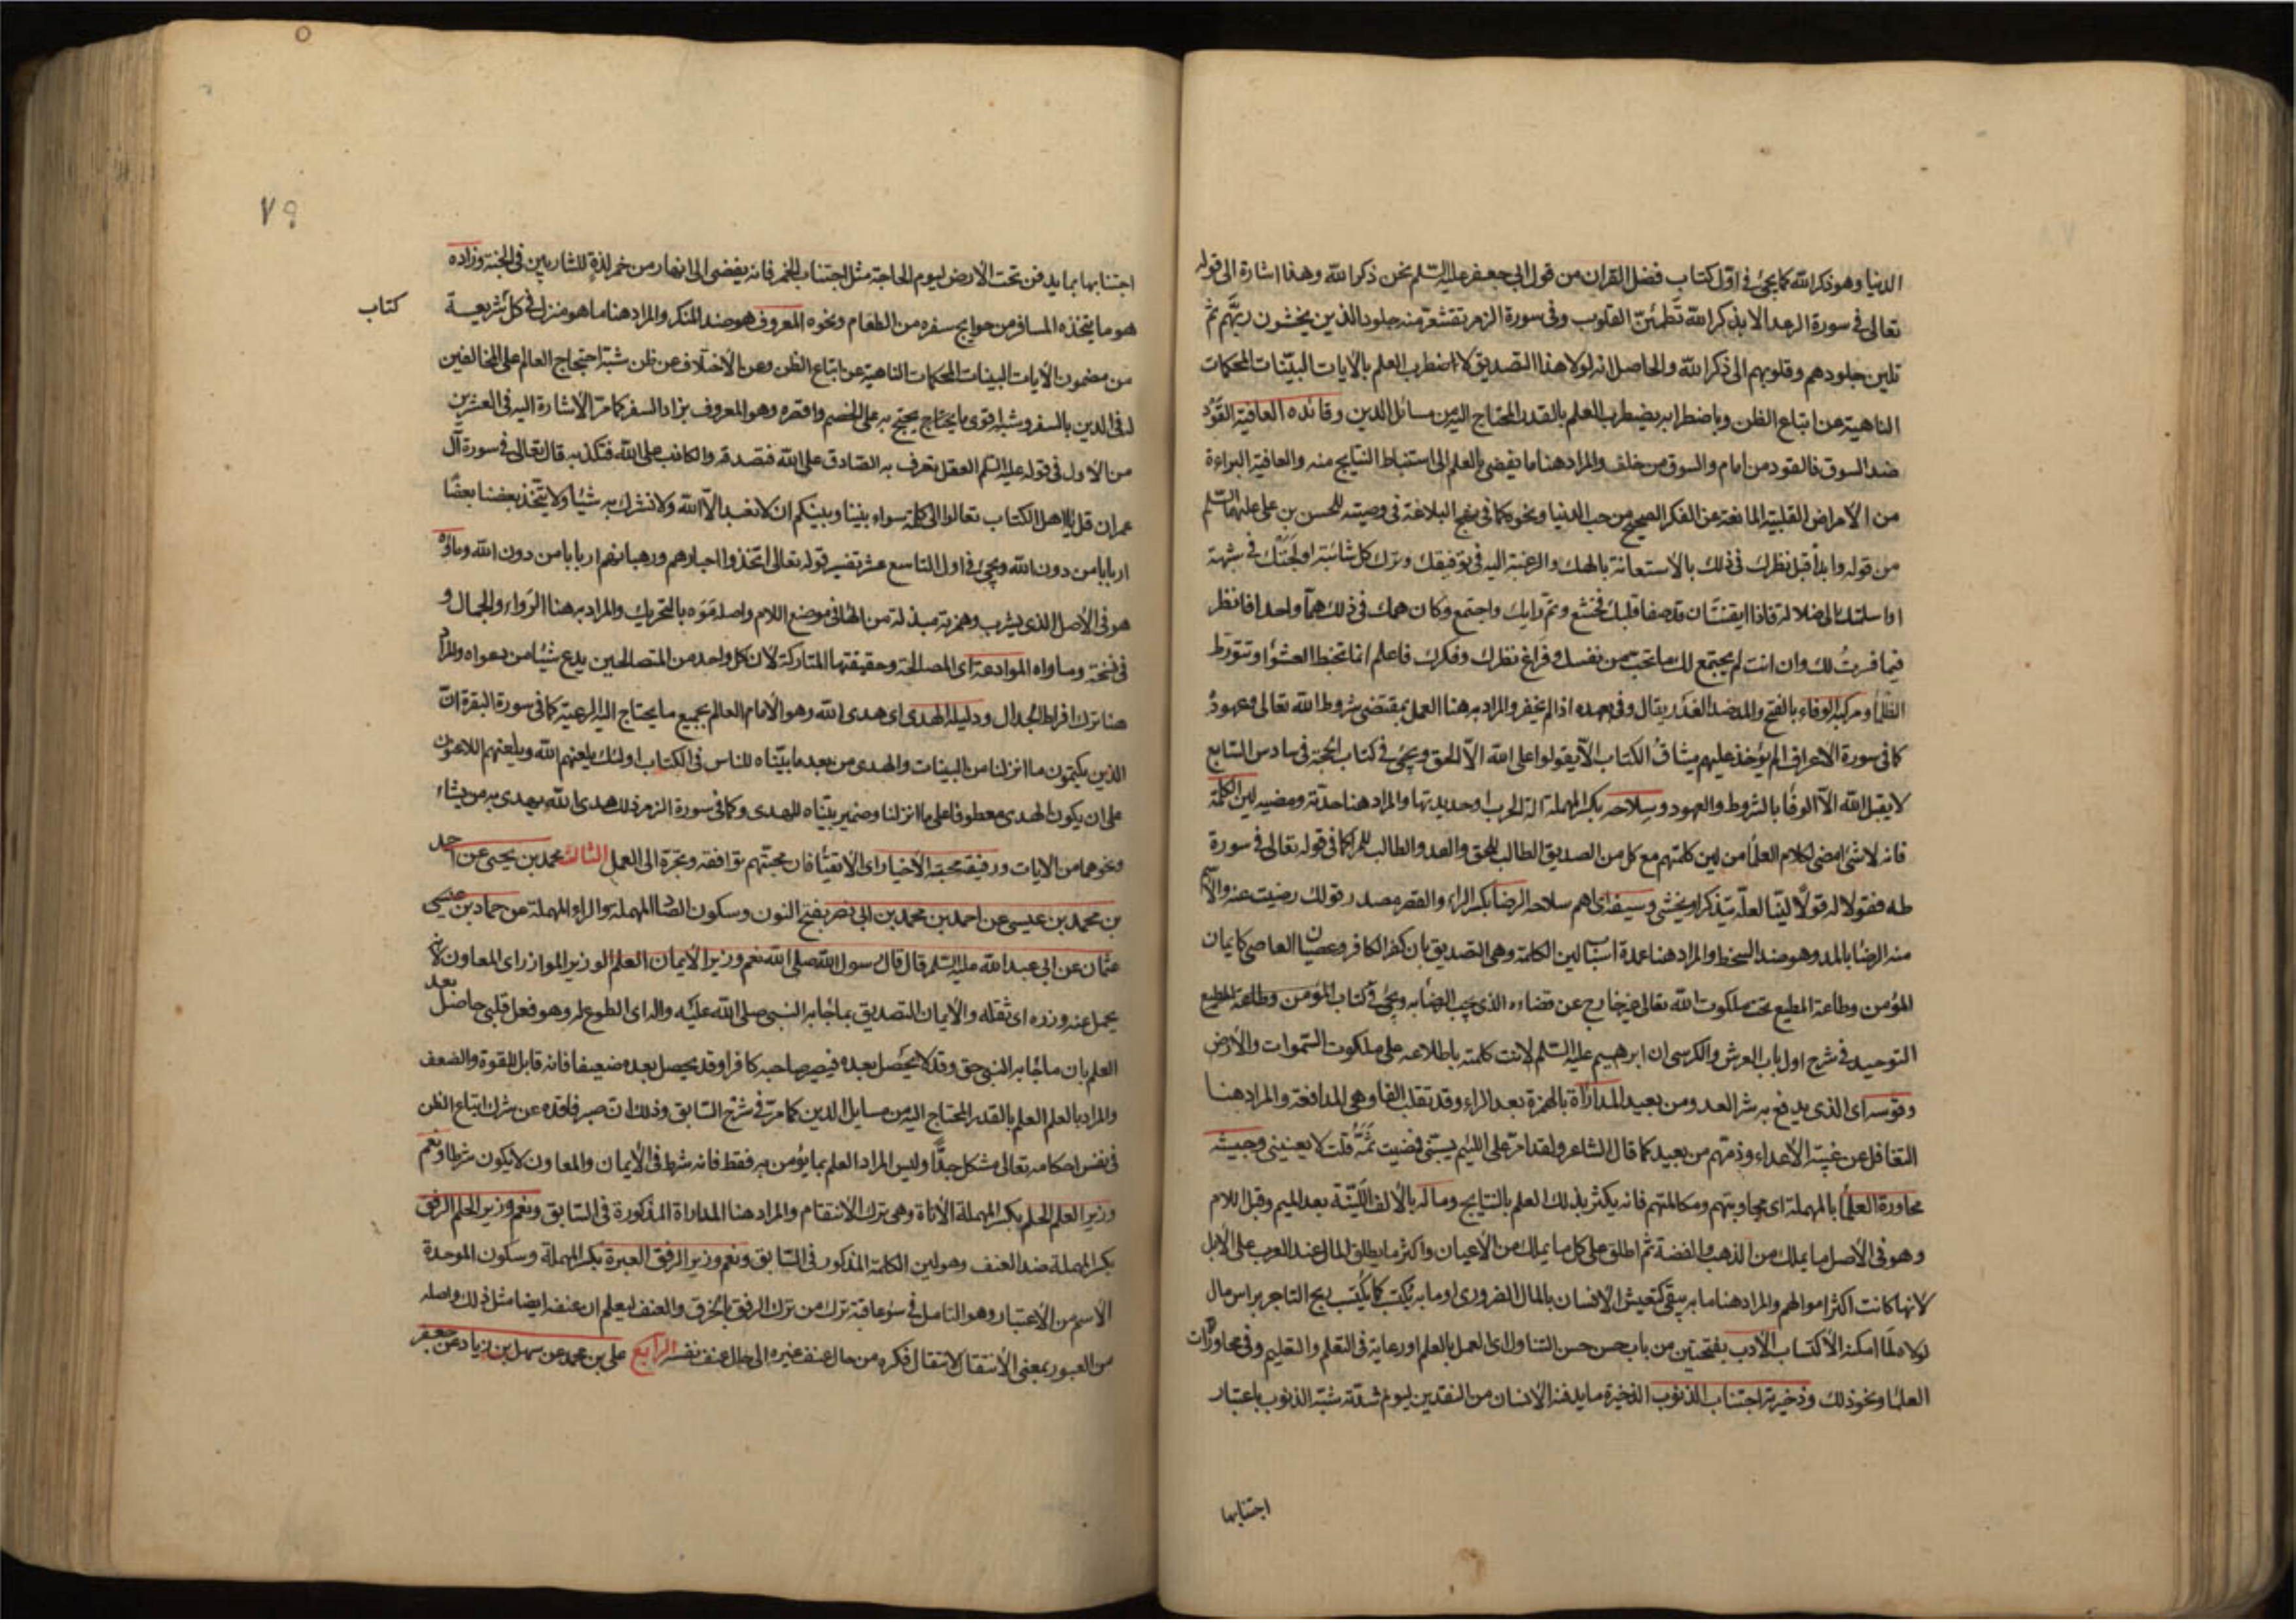 الدنيا وهو ذكر الله كما يجئ في اول كتاب فضل القران من قول ابي جعفر عليه السلم نحن ذكر الله وهذا اشارة الى قوله
تعالى في سورة الرعد الا بذكر الله تطمئن القلوب وفي سورة الزمر تقشعر منه جلود الذين يخشون ربهم ثم
تلين جلودهم وقلوبهم الى ذكر الله والحاصل انه لولا هذا التصديق لاضطرب العلم بالايات البينات المحكمات
الناهية عن اتباع الظن وباضطرابه يضطرب العلم بالقدر المحتاج اليه من مسائل الدين وقائده العافية القود
ضد السوق فالقود من امام والسوق من خلف والمراد هنا ما يفضي بالعلم الى استنباط النتايج منه والعافية البراءة
من الامراض القلبية المانعة عن الفكر الصحيح من حب الدنيا ونحوه كما في نهج البلاغة في وصيته للحسن بن علي عليهما السلم
من قوله وابدأ قبل نظرك في ذلك بالاستعانة بالهك والرغبة اليه في توفيقك وترك كل شائبة اولجتك في شبهة
او اسلمتك الى ضلالة فاذا ايقنت ان قد صفا قلبك فخشع وتم رايك واجتمع وكان همك في ذلك هما واحدا فانظر
فيما فسرت لك وان انت لم يجتمع لك ما تحب من نفسك وفراغ نظرك وفكرك فاعلم انما تخبط العشواء وتتورط
الظلماء ومركبه الوفاء بالفتح والمد ضد الغدر يقال وفى بعهده اذا لم يخفر والمراد به هنا العمل بمقتضى شروط الله تعالى وعهوده
كما في سورة الاعراف الم يؤخذ عليهم ميثاق الكتاب الا يقولوا على الله الا الحق ويجئ في كتاب الحجة في سادس السابع
لا يقبل الله الا الوفا بالشروط والعهود وسلاحه بكسر المهملة الة الحرب او حديدتها والمراد هنا حدته ومضيه لين الكلمة
فانه لا شئ امضى لكلام العلما من لين كلمتهم مع كل من الصديق الطالب للحق والعدو الطالب للمراء كما في قوله تعالى في سورة
طه فقولا له قولا لينا لعله يتذكر او يخشى وسيفه اى اهم سلاحه الرضا بكسر الراء والقصر مصدر قولك رضيت عنه والاسم
منه الرضا بالمد وهو ضد السخط والمراد هنا عمدة اسباب لين الكلمة وهي التصديق بان كفر الكافر وعصيان العاصي كايمان
المؤمن وطاعة المطيع تحت ملكوت الله تعالى غير خارج عن قضاءه الذي يجب الرضا به ويجئ في كتاب
التوحيد في شرح اول باب العرش والكرسي ان ابرهيم عليه السلم لانت كلمته باطلاعه على ملكوت السموات والارض
وقوسه اى الذي يدفع به شر العدو من بعيد المداراة بالهمزة بعد الراء وقد تقلب الفا وهي المدافعة والمراد هنا
التغافل عن غيبة الاعداء وذمهم من بعيد كما قال الشاعر ولقد امر على اللئيم يسبني فمضيت ثمة قلت لا يعنيني وجيشه
محاورة العلما بالمهملة اى مجاوبتهم ومكالمتهم فانه يكثر بذلك العلم بالنتايج وماله بالالف اللينة بعد الميم وقبل اللام
وهو في الاصل ما يملك من الذهب والفضة ثم اطلق على كل ما يملك من الاعيان واكثر ما يطلق المال عند العرب على الابل
لانها كانت اكثر اموالهم والمراد هنا ما به يبقى كتعيش الانسان بالمال الضروري او ما به يكتسب كما يكتسب ربح التاجر براس مال
لولاه لما امكنه الاكتساب الادب بفتحتين من باب حسن حسن التناول اى العمل بالعلم او رعاية في التعلم والتعليم وفي محاورات
العلما ونحو ذلك وذخيرته اجتناب الذنوب الذخيرة ما يدفنه الانسان من النقدين ليوم شدته شبه الذنوب باعتبار
اجتنابها
٧٩
اجتنابها بما يدفن تحت الارض ليوم الحاجة مثل اجتناب الخمر فانه يفضي الى انهار من خمر لذة للشاربين في الجنة وزاده
هو ما يتخذه المسافر من حوايج سفره من الطعام ونحوه المعروف هو ضد المنكر والمراد هنا ما هو منزل في كل شريعة
كتاب
من مضمون الايات البينات المحكمات الناهية عن اتباع الظن وعن الاختلاف عن ظن شبه احتجاج العالم على المخالفين
له في الدين بالسفر وشبه اقوى ما يحتاج يحتج به على الخصم وافقره وهو المعروف بزاد السفر كما مر الاشارة اليه في العشرين
من الاول في قوله عليه السلم العقل يعرف به الصادق على الله فتصدقه والكاذب على الله فتكذبه قال تعالى في سورة آل
عمران قل يا اهل الكتاب تعالوا الى كلمة سواء بيننا وبينكم ان لا نعبد الا الله ولا نشرك به شيئا ولا يتخذ بعضنا بعضا
اربابا من دون الله ويجئ في اول التاسع عشر تفسير قوله تعالى اتخذوا احبارهم ورهبانهم اربابا من دون الله وماؤه
هو في الاصل الذي يشرب وهمزته مبدلة من الهاء في موضع اللام واصله موه بالتحريك والمراد به هنا الرواء والجمال و
في نسخة وماواه الموادعة اى المصالحة وحقيقتها المتاركة لان كل واحد من المتصالحين يدع شيئا من دعواه والمراد
هنا ترك افراط الجدال ودليله الهدى اى هدى الله وهو الامام العالم بجميع ما يحتاج اليه الرعية كما في سورة البقرة ان
الذين يكتمون ما انزلنا من البينات والهدى من بعد ما بيناه للناس في الكتاب اولئك يلعنهم الله ويلعنهم اللاعنون
على ان يكون الهدى معطوفا على ما انزلنا وضمير بيناه للهدى وكما في سورة الزمر ذلك هدى الله يهدي به من يشاء
ونحوهما من الايات ورفيقه محبة الاخيار اى الاتقياء فان محبتهم توافقه وتجره الى العمل الثالث محمد بن يحيى عن احمد
بن محمد بن عيسى عن احمد بن محمد بن ابي نصر بفتح النون وسكون الصاد المهملة والراء المهملة عن حماد بن عيسى
عثمان عن ابي عبد الله عليه السلم قال قال رسول الله صلى الله نعم وزير الايمان العلم الوزير الموازر اى المعاون لانه
يحمل عنه وزره اى ثقله والايمان التصديق بما جاء به النبي صلى الله عليه واله اى الطوع له وهو فعل قلبي حاصل بعد
العلم بان ما جاء به النبي حق وقد لا يحصل بعده فيصير صاحبه كافرا وقد يحصل بعده ضعيفا فانه قابل للقوة والضعف
والمراد بالعلم العلم بالقدر المحتاج اليه من مسايل الدين كما مر في شرح السابق وذلك ان صبر فاقده عن شرك اتباع الظن
في نفس احكامه تعالى مشكل جدا وليس المراد العلم بما يؤمن به فقط فانه شرط في الايمان والمعاون لا يكون شرطا ونعم
وزير العلم الحلم بكسر المهملة الاناة وهي ترك الانتقام والمراد هنا المداراة المذكورة في السابق ونعم وزير الحلم الرفق
بكسر المهملة ضد العنف وهو لين الكلمة المذكور في السابق ونعم وزير الرفق العبرة بكسر المهملة وسكون الموحدة
الاسم من الاعتبار وهو التامل في سوء عاقبة ترك من ترك الرفق بالخرق والعنف ليعلم ان عنفه ايضا مثل ذلك واصله
من العبور بمعنى الانتقال لانتقال فكره من حال عنف غيره الى حال عنف نفسه الرابع علي بن محمد عن سهل بن زياد عن جعفر